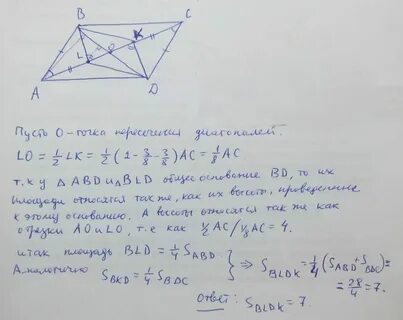 B
C
K
L
O
A
D
Пусть О-точка пересечения диагоналей.
LO = 1/2 LK = 1/2 (1 - 3/8 - 3/8) AC = 1/8 AC
т.к у △ ABD и △ BLD общее основание BD, то их
площади относятся так же, как их высоты, проведенные
к этому основанию. А высоты относятся так же как
отрезки AO и LO, т.е как 1/2 AC / 1/8 AC = 4.
итак площадь BLD = 1/4 S_ABD
Аналогично S_BKD = 1/4 S_BDC } ⇒ S_BLDK = 1/4 (S_ABD + S_BDC) =
= 28/4 = 7.
Ответ: S_BLDK = 7.